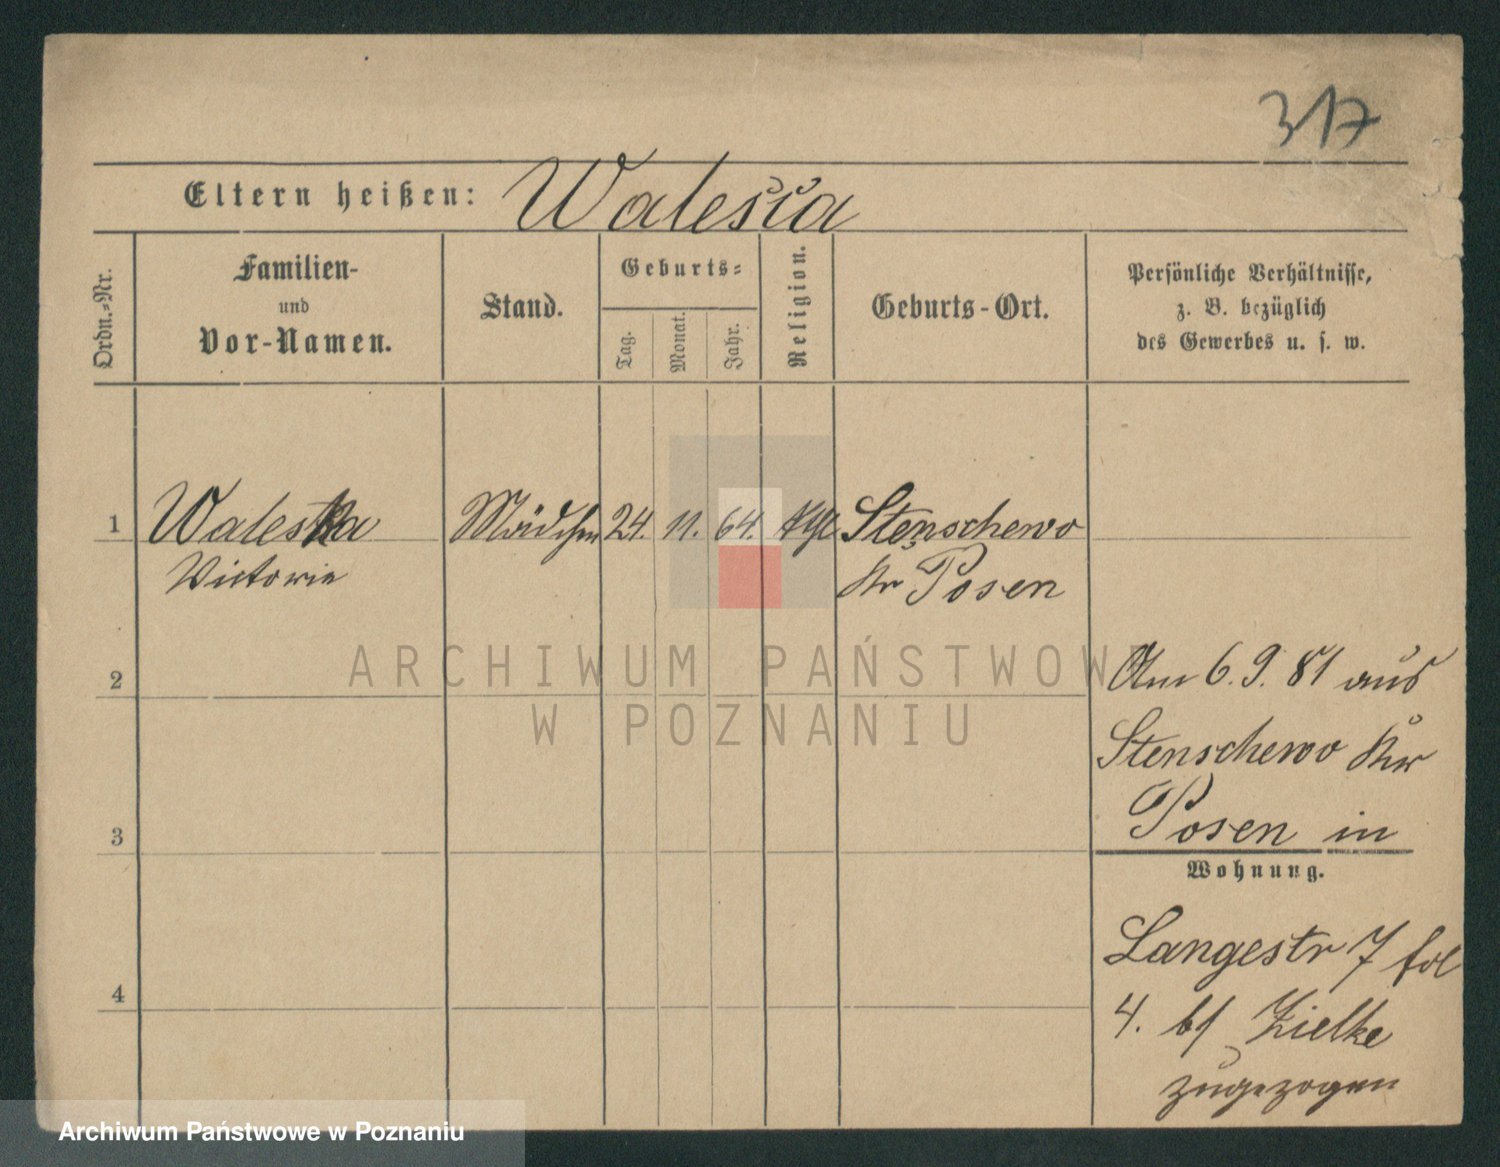 317
Eltern heißen: Walesia
Ordn.-Nr.
Familien-
und
Vor-Namen.
Stand.
Geburts-
Tag.
Monat.
Jahr.
Religion.
Geburts-Ort.
Persönliche Verhältnisse,
z. B. bezüglich
des Gewerbes u. s. w.
1 Waleska Mädchen 24. 11. 64. kth Stenschewo
Victorie Kr Posen
2
3
4
Am 6.9.81 aus
Stenschewo Kr
Posen in
Wohnung.
Langestr 7 fol
4. bf Zielke
zugezogen
ARCHIWUM PAŃSTWOWE
W POZNANIU
Archiwum Państwowe w Poznaniu